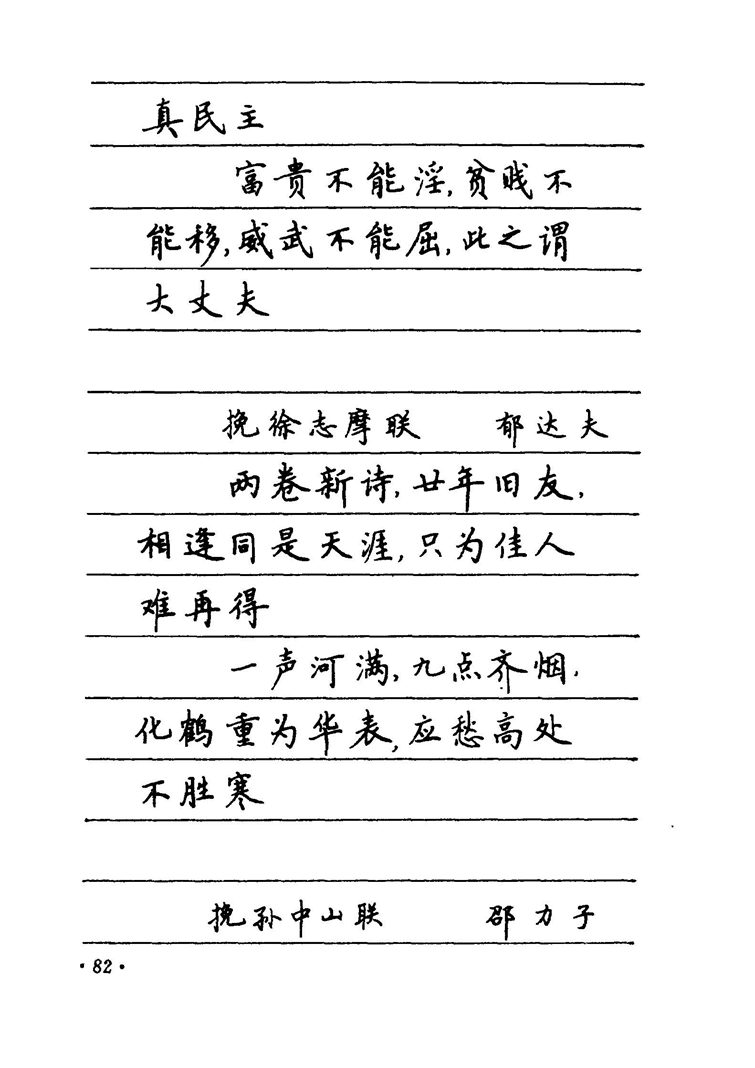 真民主
富贵不能淫,贫贱不
能移,威武不能屈,此之谓
大丈夫
挽徐志摩联 郁达夫
两卷新诗,廿年旧友,
相逢同是天涯,只为佳人
难再得
一声河满,九点齐烟,
化鹤重为华表,应愁高处
不胜寒
挽孙中山联 邵力子
·82·